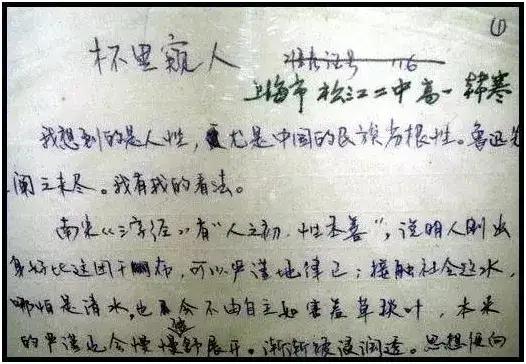 ①
杯里窥人
准考证号 116
上海市松江二中高一 韩寒
我想到的是人性,尤是中国的民族劣根性。鲁迅先
阐之未尽。我有我的看法。
南宋《三字经》有“人之初,性本善”,说明人刚出
身好比这团干布,可以严谨地律己;接触社会这水,
哪怕是清水,也会不由自主如害羞草拢叶,本来
的严谨也会慢慢地舒展开,渐渐被浸润透。思想便向